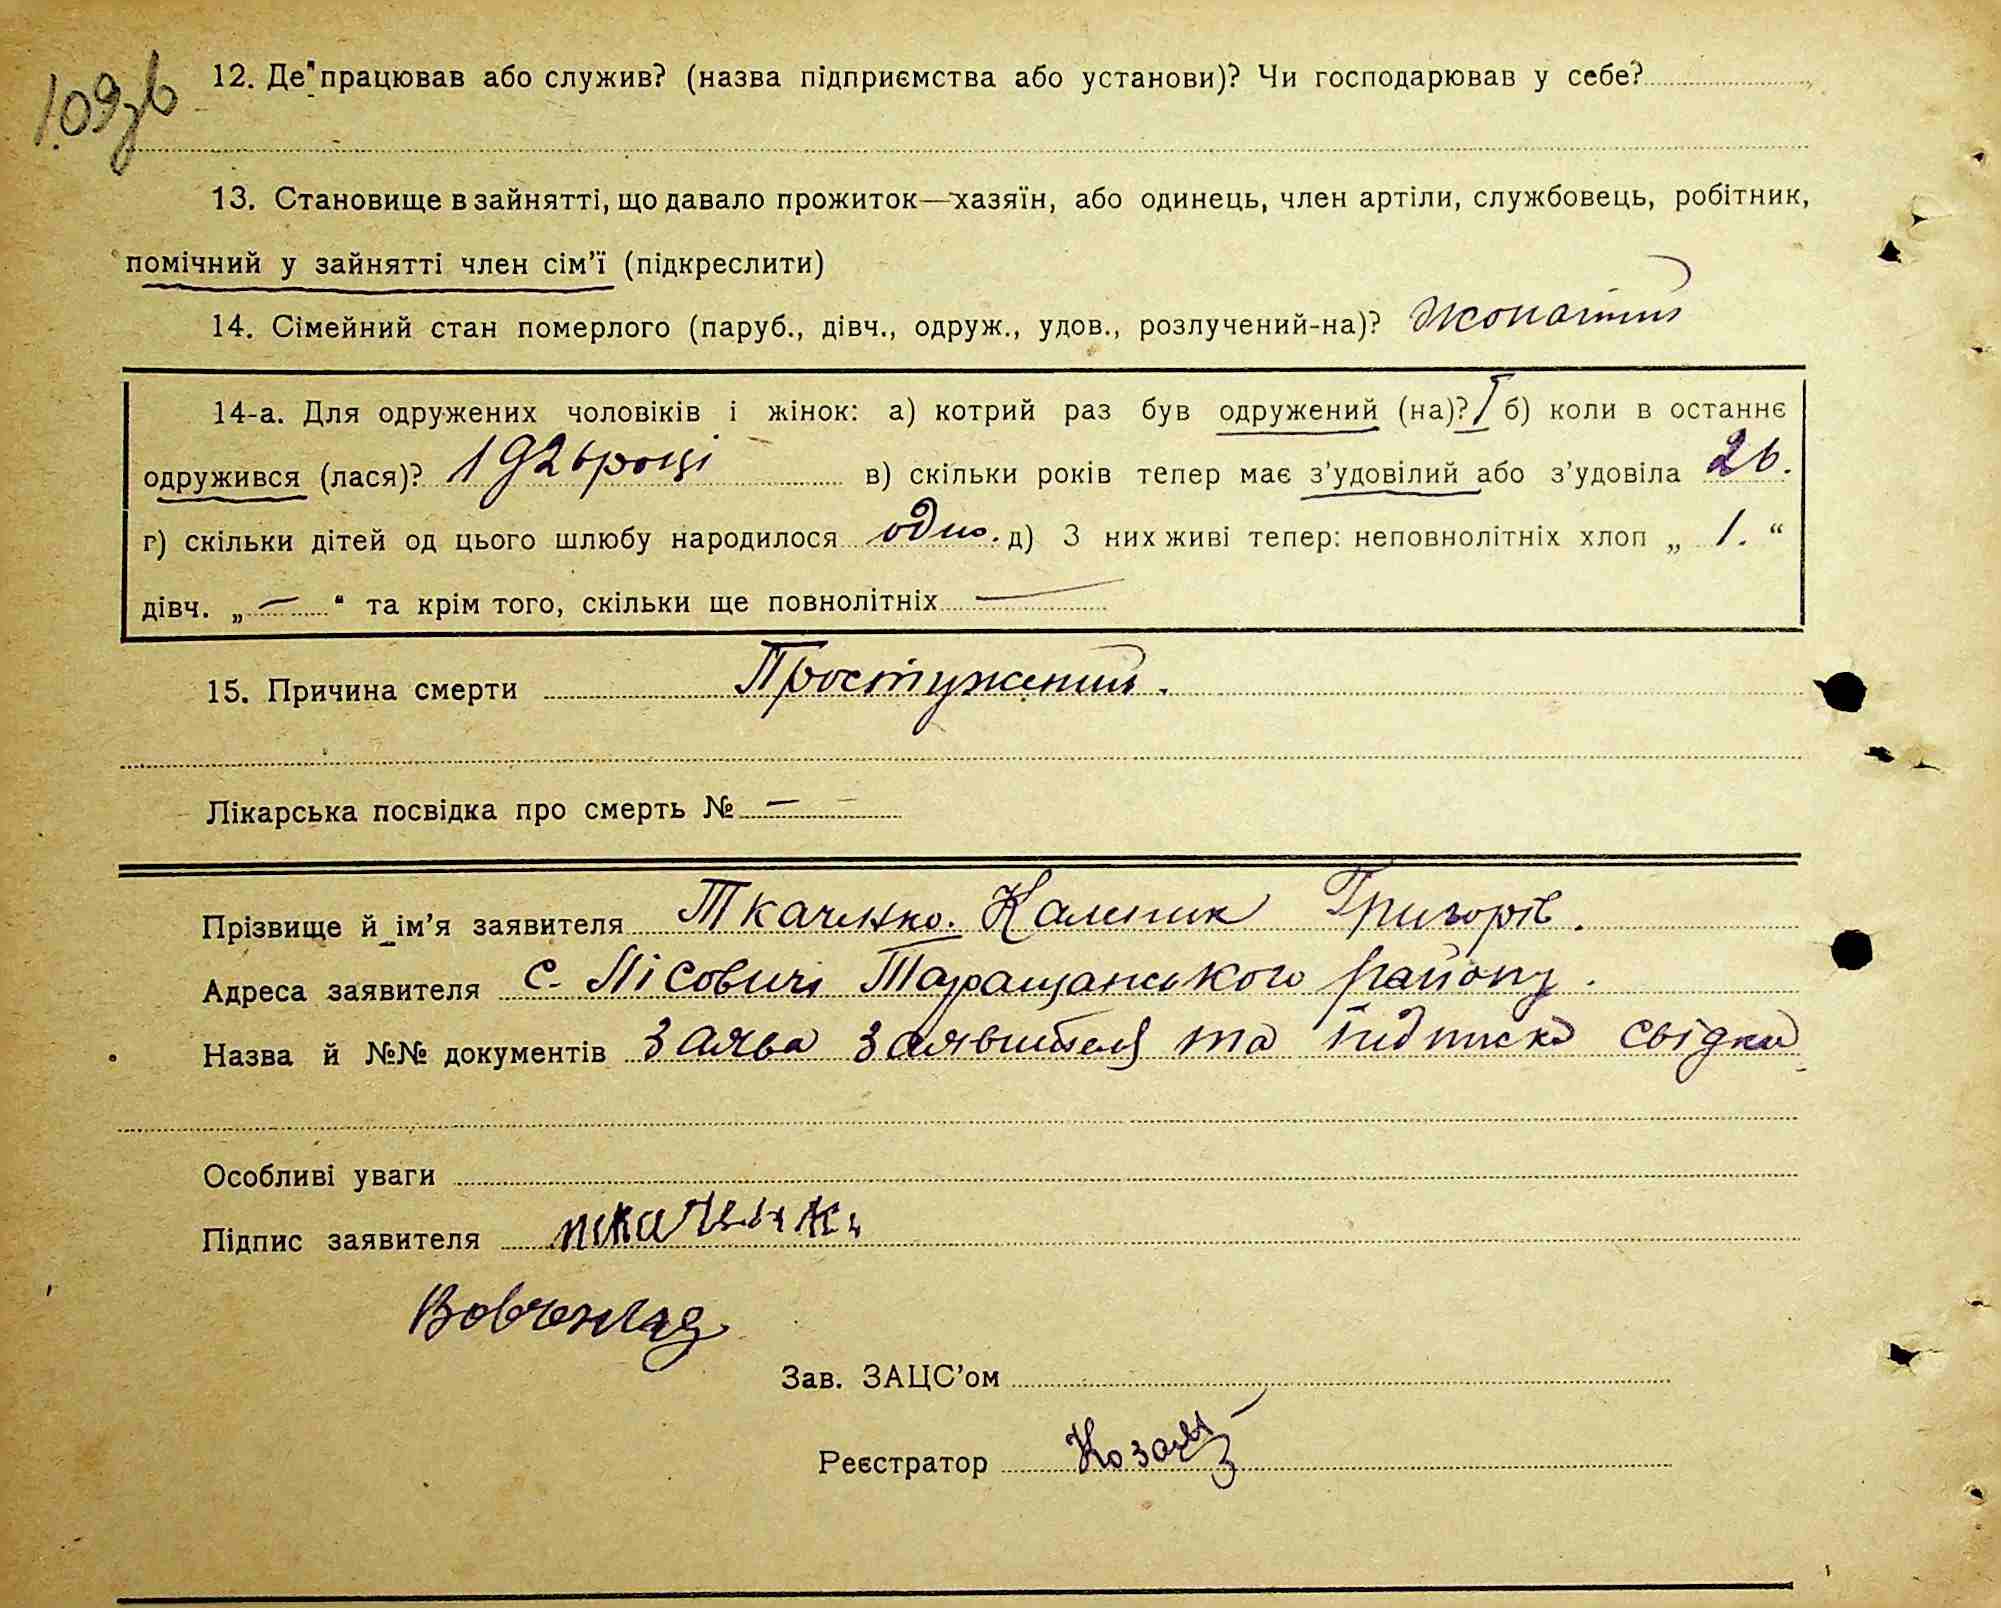 109зв
12. Де працював або служив? (назва підприємства або установи)? Чи господарював у себе?
13. Становище в зайнятті, що давало прожиток—хазяїн, або одинець, член артіли, службовець, робітник,
помічний у зайнятті член сім’ї (підкреслити)
14. Сімейний стан померлого (паруб., дівч., одруж., удов., розлучений-на)? жонатий
14-а. Для одружених чоловіків і жінок: а) котрий раз був одружений (на)? I б) коли в останнє
одружився (лася)? 1926 році в) скільки років тепер має з’удовілий або з’удовіла 26.
г) скільки дітей од цього шлюбу народилося одно. д) З них живі тепер: неповнолітніх хлоп „ 1. “
дівч. „ — “ та крім того, скільки ще повнолітніх —
15. Причина смерти Простужений.
Лікарська посвідка про смерть № —
Прізвище й ім’я заявителя Ткаченко. Каленик Григорів.
Адреса заявителя с. Лісовичі Таращанського району.
Назва й №№ документів заява заявителя та підписка свідки
Особливі уваги
Підпис заявителя ткаченко
Зав. ЗАЦС’ом
Реєстратор